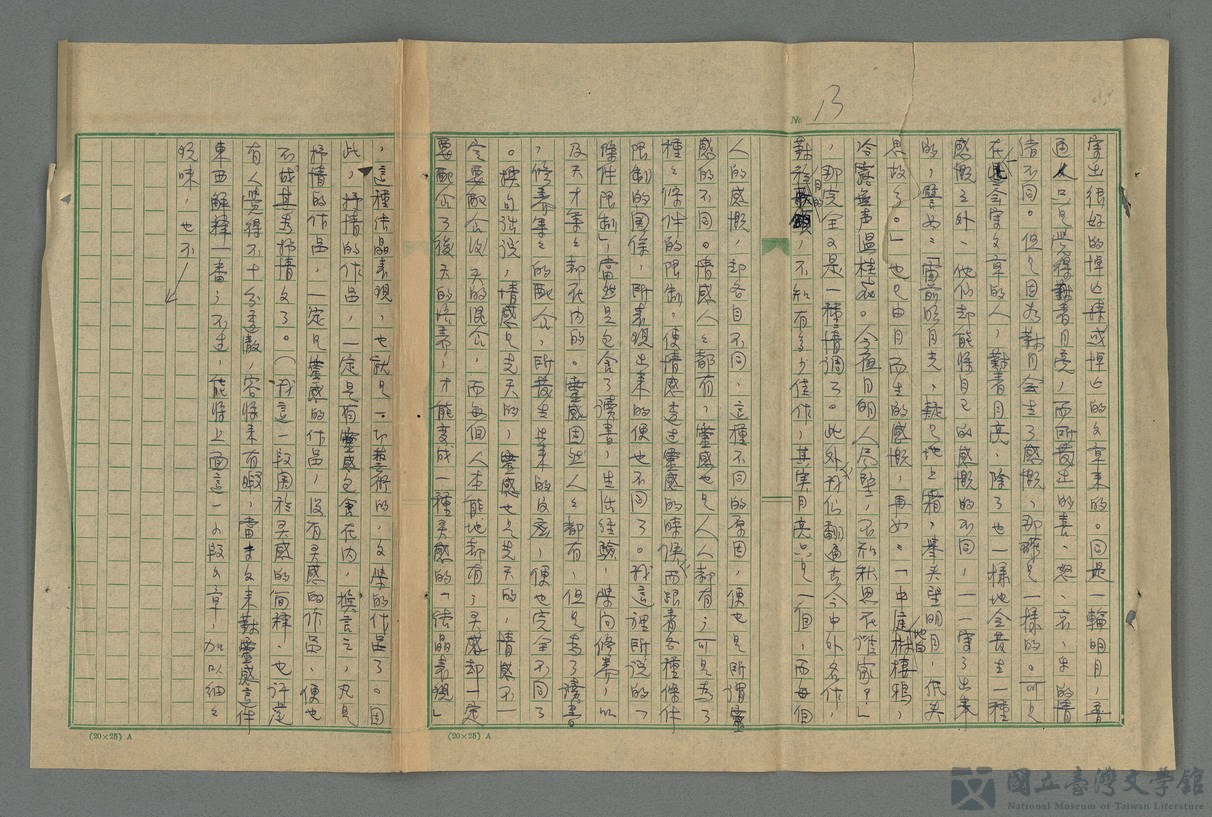 № 13
寫出很好的悼亡英或悼亡的文章來的。同是一輪明月，普
通人只是覺得對着月亮，而所發生的喜、怒、哀、樂的情
緒不同。但是因為對月會生了感慨，那確是一樣的。可是
在會寫文章的人，對着月亮，除了也一樣地會發生一種
感慨之外，他們却能將自己的感慨的不同，一一寫了出來
的，譬如：「窗前明月光，疑是地上霜，舉頭望明月，低頭
思故鄉。」也是由月而生的感慨，再如：「中庭地白樹棲鴉，
冷露無聲溼桂花。今夜月明人盡望，不知秋思在誰家？」
，那完全又是一種情調了。此外我們翻遍古今中外名作，
對於月的，不知有多少佳作，其實月亮只是一個，而每個
人的感慨，却各自不同，這種不同的原因，便也是所謂靈
感的不同。情感人人都有，靈感也是人人都有；可是為了
種種條件的限制，便情感達達靈感的時候，而跟着各種條件
限制的關係，所表現出來的便也不同了。我這裡所說的「
條件限制」，當然是包含了讀書，生活經驗，學問修養，以
及天才等等都在內的。靈感固然人人都有，但是為了讀書
，修養等等的配合，所發生出來的反應，便也完全不同了
。換句話說，情感是先天的，靈感也是先天的，情感不一
定要配合後天的混合，而每個人本能地都有；灵感却一定
要配合了後天的培養，才能變成一種灵感的「結晶表現」
，這種結晶表現，也就是一切藝術的，文學的作品了。因
此，抒情的作品，一定是有靈感包含在內，換言之，凡是
抒情的作品，一定是靈感的作品，沒有灵感的作品，便也
不成其為抒情文了。（我這一段關於灵感的解釋，也許是
有人覺得不十分透澈，容將來有暇，當專文來對靈感這件
東西解釋一番；不過，能將上面這一小段文章，加以細細
玩味，也不
(20×25) A
(20×25) A
國立臺灣文學館
National Museum of Taiwan Literature